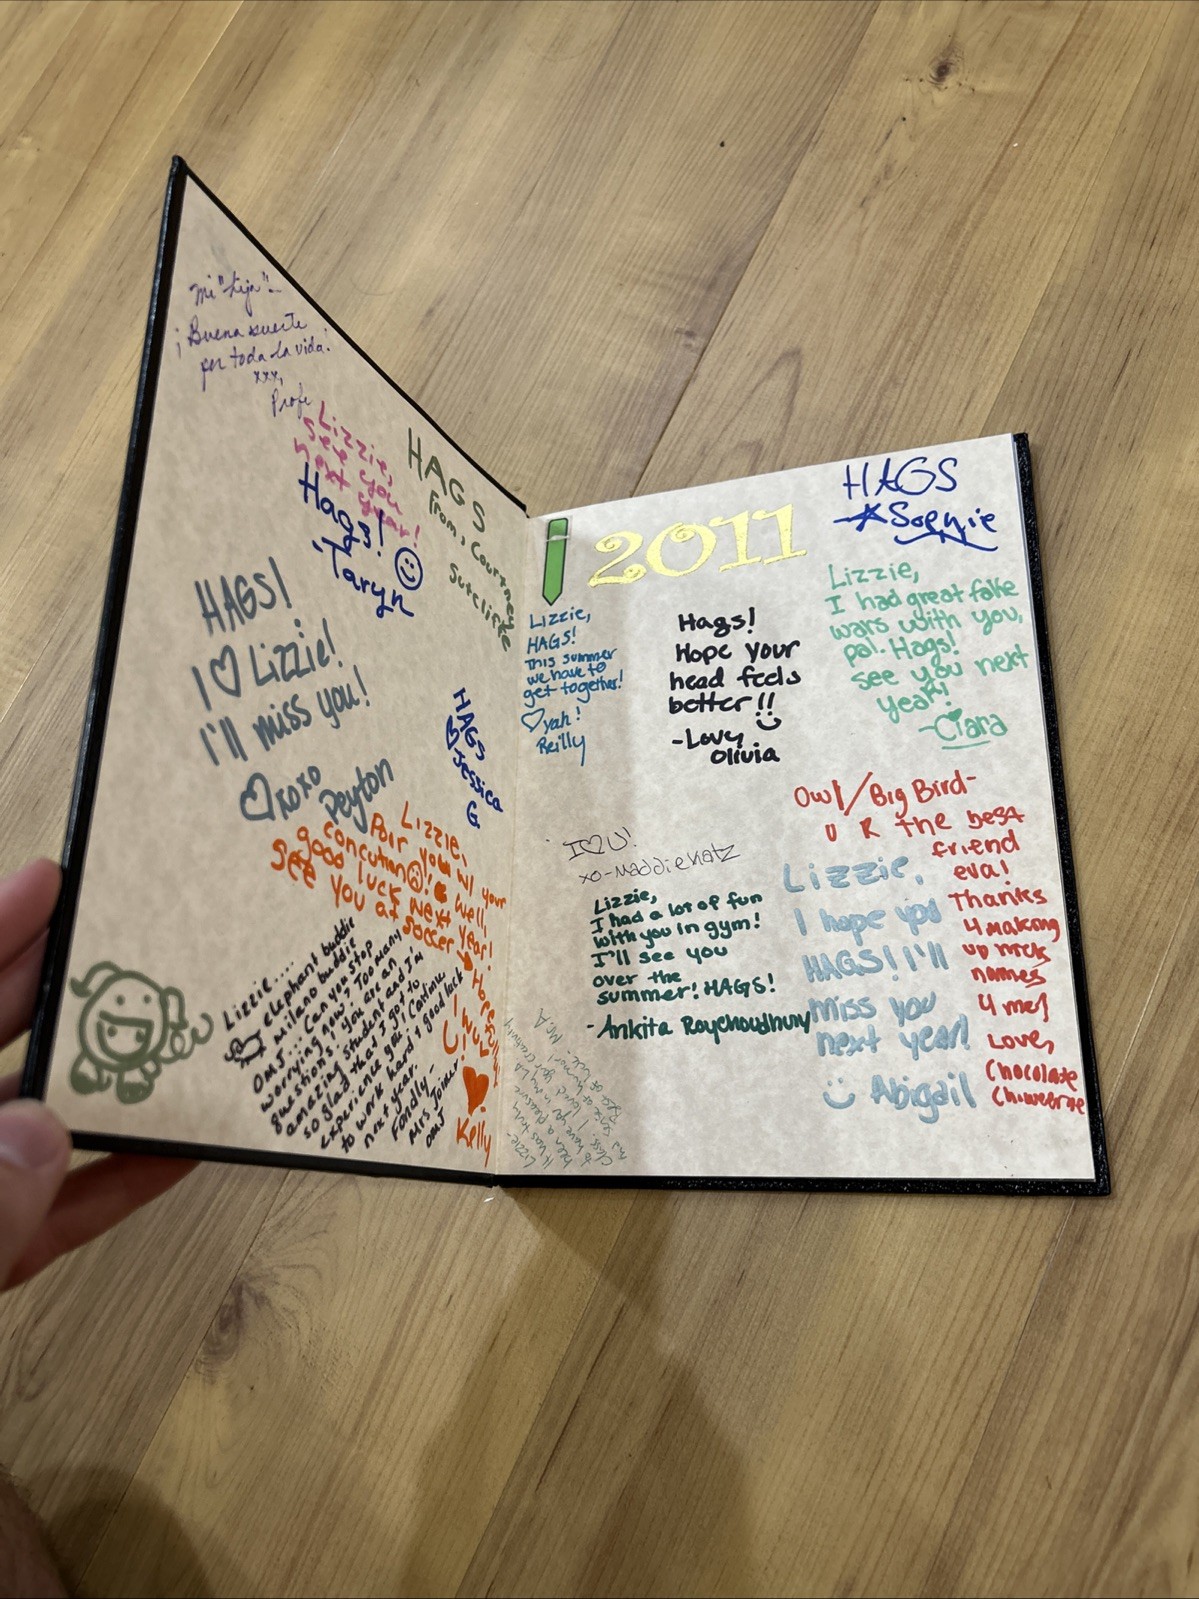 Mi "hija"..
¡Buena suerte
por toda la vida!
xxx,
Profe
Lizzie,
see you
next year!
HAGS
from, Courtney
Sutcliffe
Hags!
Taryn
HAGS!
I ♡ Lizzie!
I'll miss you!
♡xoxo
Peyton
HAGS
♡ Jessica
G.
Lizzie,
Poor you w/ your
concution☹! ♥ Well,
good luck next year!
See you at soccer
Hopefully
I ♥ U!
Kelly
Lizzie....
elephant buddie
milano buddie
OMJ... Can you stop
worrying now? Too many
questions. You are an
amazing student and I'm
so glad that I got to
experience gai! Continue
to work hard & good luck
next year.
Fondly-
Mrs Joiner
OMJ
2011
Lizzie,
HAGS!
This summer
we have to
get together!
♡yah!
Reilly
Hags!
Hope your
head feels
better!!
-Love,
Olivia
HAGS
Sophie
Lizzie,
I had great fake
wars with you,
pal. Hags!
see you next
year!
-Ciara
I♡U!
xo-Maddie Katz
Lizzie,
I had a lot of fun
with you in gym!
I'll see you
over the
summer! HAGS!
-Ankita Roychoudhury
Owl/Big Bird-
U R the best
friend
eva!
Thanks
4 making
up nick
names
4 me!
Love,
Chocolate
Lizzie,
I hope you
HAGS! I'll
miss you
next year!
Abigail
Lizzie
It was truly
been a pleasure
to have you in my LA
class. I loved yer creativity